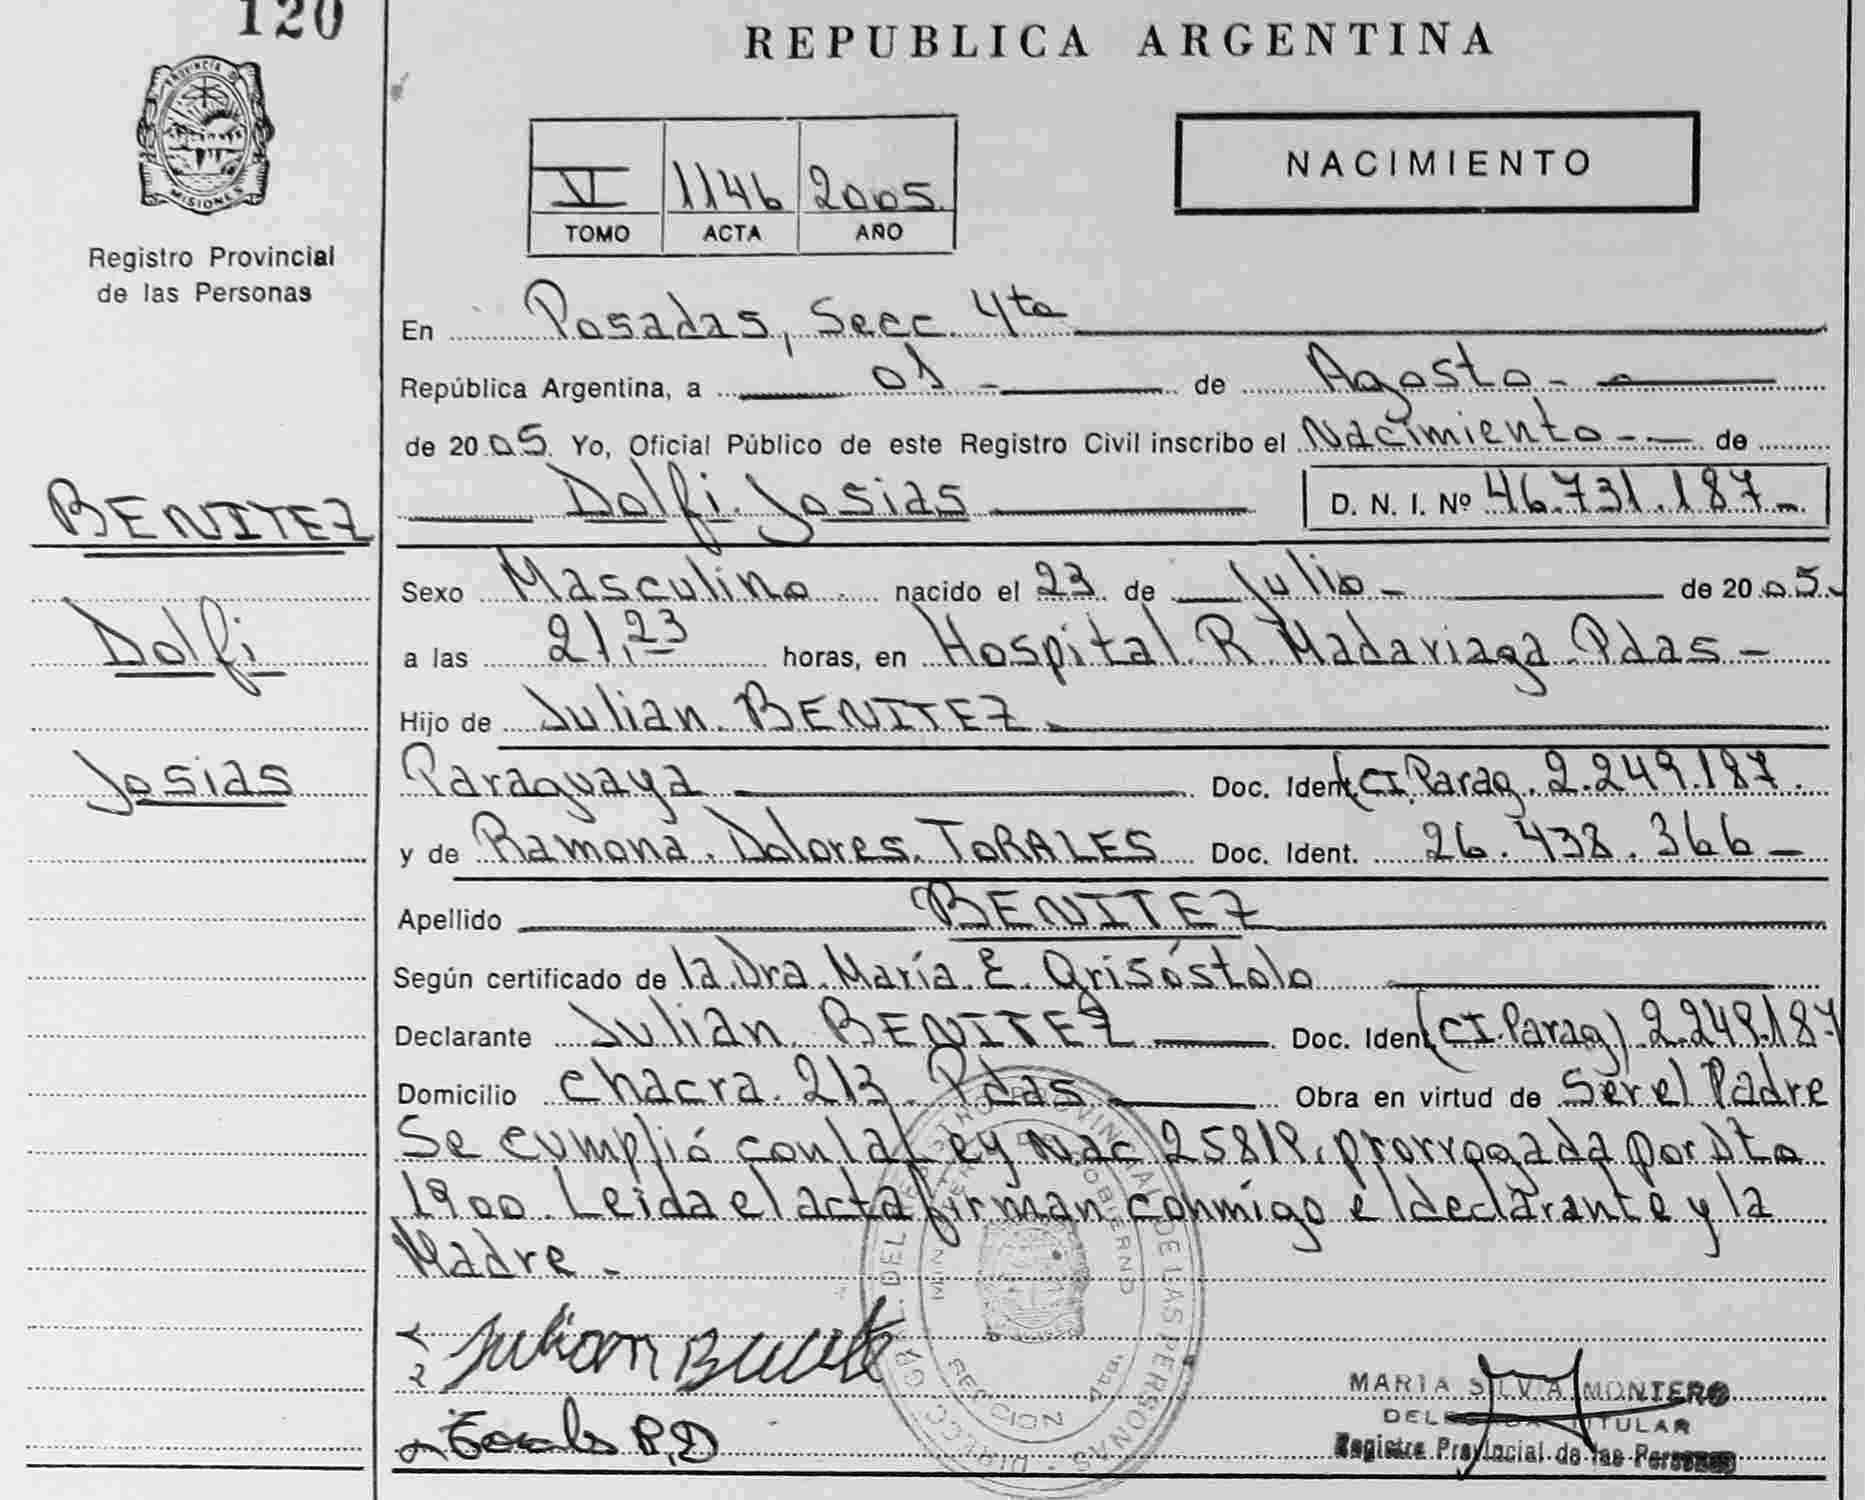 120
REPUBLICA ARGENTINA
PROVINCIA D
MISIONES
Registro Provincial
de las Personas
VI 1146 2005
TOMO ACTA AÑO
NACIMIENTO
En Posadas, Secc. 4ta
República Argentina, a 01 - de Agosto -
de 2005 Yo, Oficial Público de este Registro Civil inscribo el Nacimiento - - de
Dolfi Josias D. N. I. Nº 46.731.187-
BENITEZ
Dolfi
Josias
Sexo Masculino nacido el 23 de Julio - de 2005.-
a las 21,23 horas, en Hospital R Madariaga Pdas -
Hijo de Julian BENITEZ
Paraguaya Doc. Ident (CI. Parag. 2.249.187.
y de Ramona Dolores TORALES Doc. Ident. 26.438.366 -
Apellido BENITEZ
Según certificado de la Dra. María E. Grisóstolo
Declarante Julian BENITEZ Doc. Ident (CI. Parag) 2.249.187
Domicilio chacra 213 Pdas Obra en virtud de Ser el Padre
Se cumplió con la Ley Nac 25819, prorrogada por Dto
1900. Leida el acta firman conmigo el declarante y la
Madre -
Julian
MARIA SILVIA MONTERO
DELEGADA TITULAR
Registro Provincial de las Personas